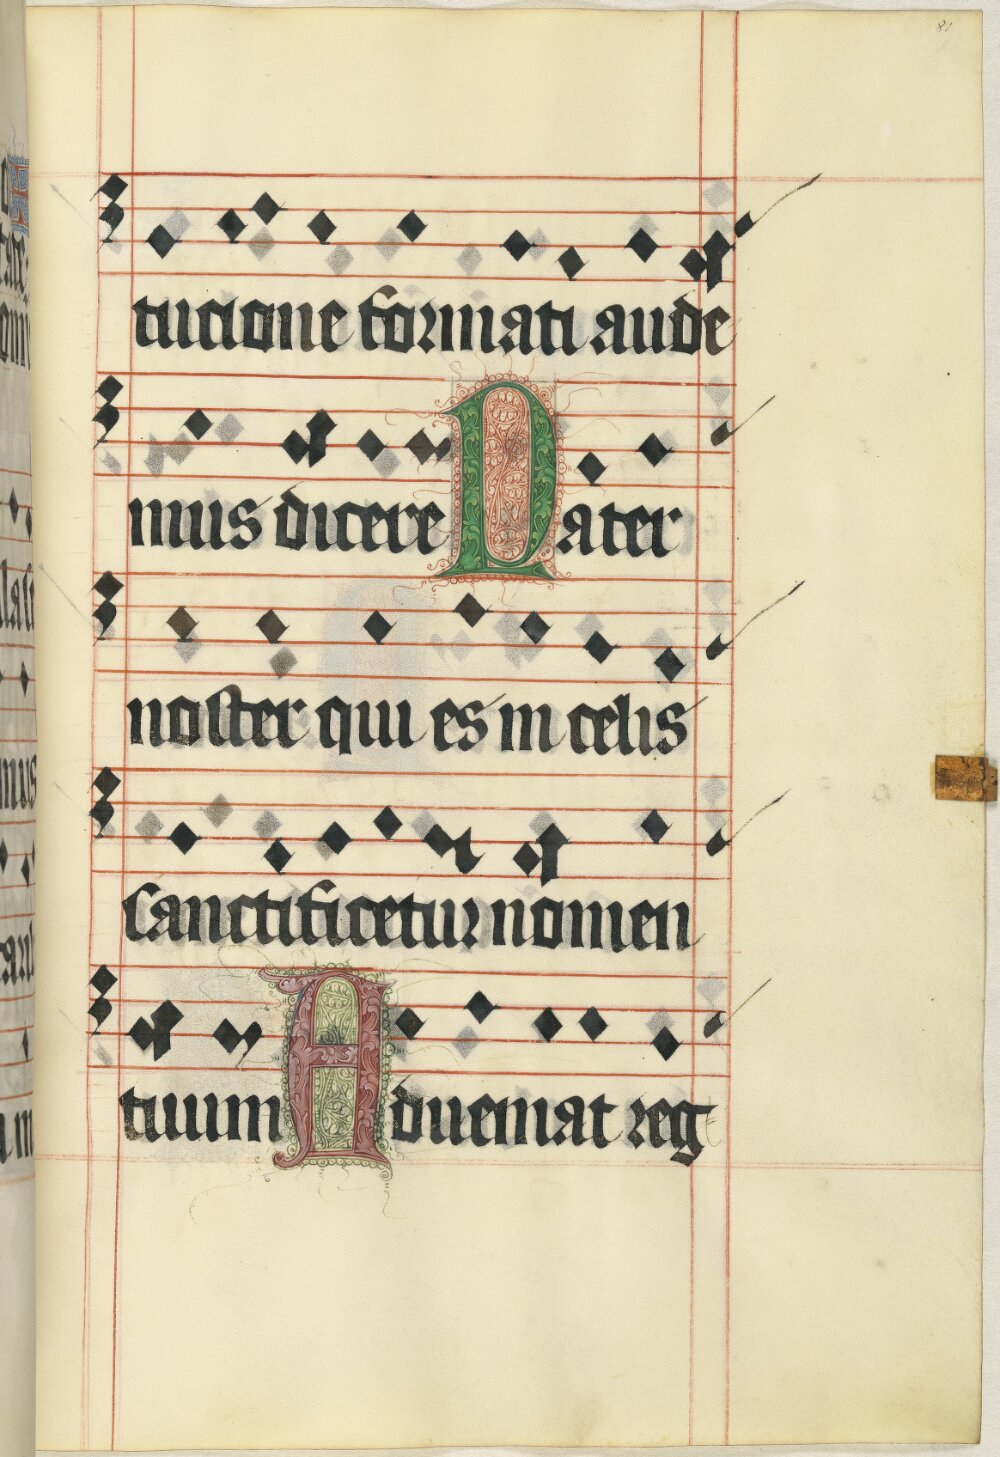 81
tucione formati aude
mus dicere Pater
noster qui es in celis
sanctificetur nomen
tuum Adueniat reg